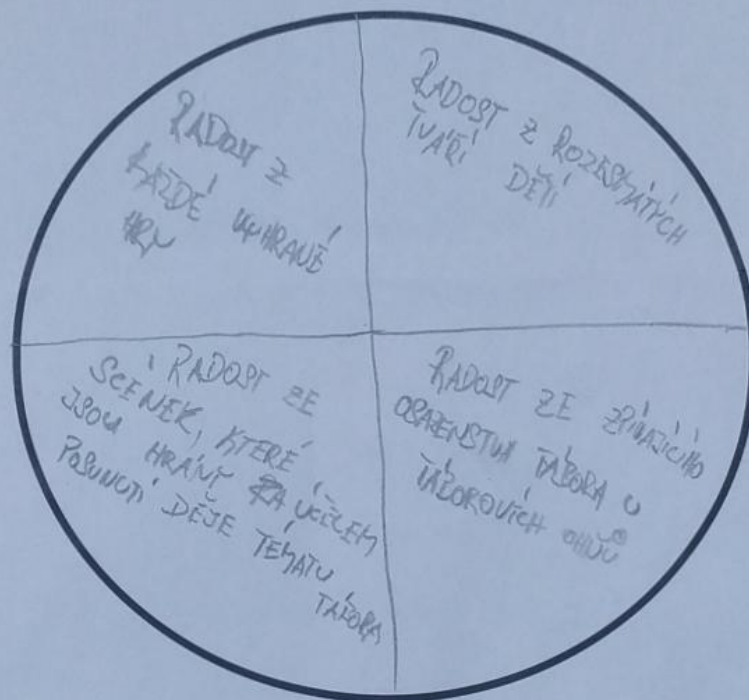 RADOST Z
KAŽDÉ VYHRANÉ
HRY
RADOST Z ROZESMÁTÝCH
TVÁŘÍ DĚTÍ
RADOST ZE
SCÉNEK, KTERÉ
JSOU HRÁNY ZA ÚČELEM
POSUNUTÍ DĚJE TÉMATU
TÁBORA
RADOST ZE ZPÍVAJÍCÍHO
OSAZENSTVA TÁBORA U
TÁBOROVÍCH OHŇŮ